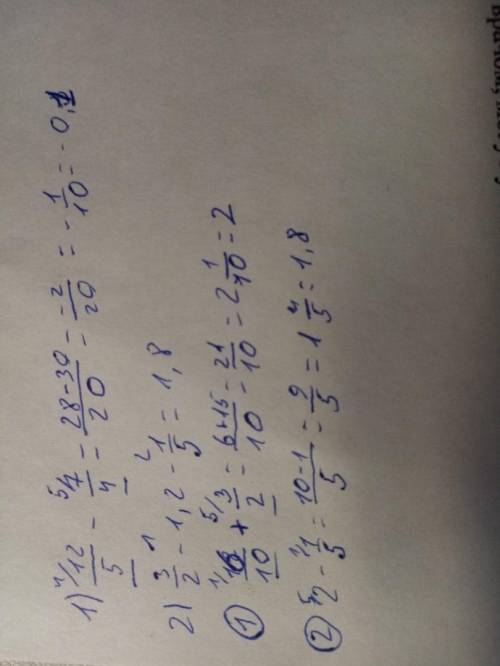 1) ⁴/12/5 - ⁵/7/4 = 28-30/20 = -2/20 = -1/10 = -0,1
2) 3/2 - 1,2 - 1/5 = 1,8
① 6/10 + ⁵/3/2 = 6+15/10 = 21/10 = 2 1/10 = 2
② ⁵/2 - ¹/1/5 = 10-1/5 = 9/5 = 1 4/5 = 1,8